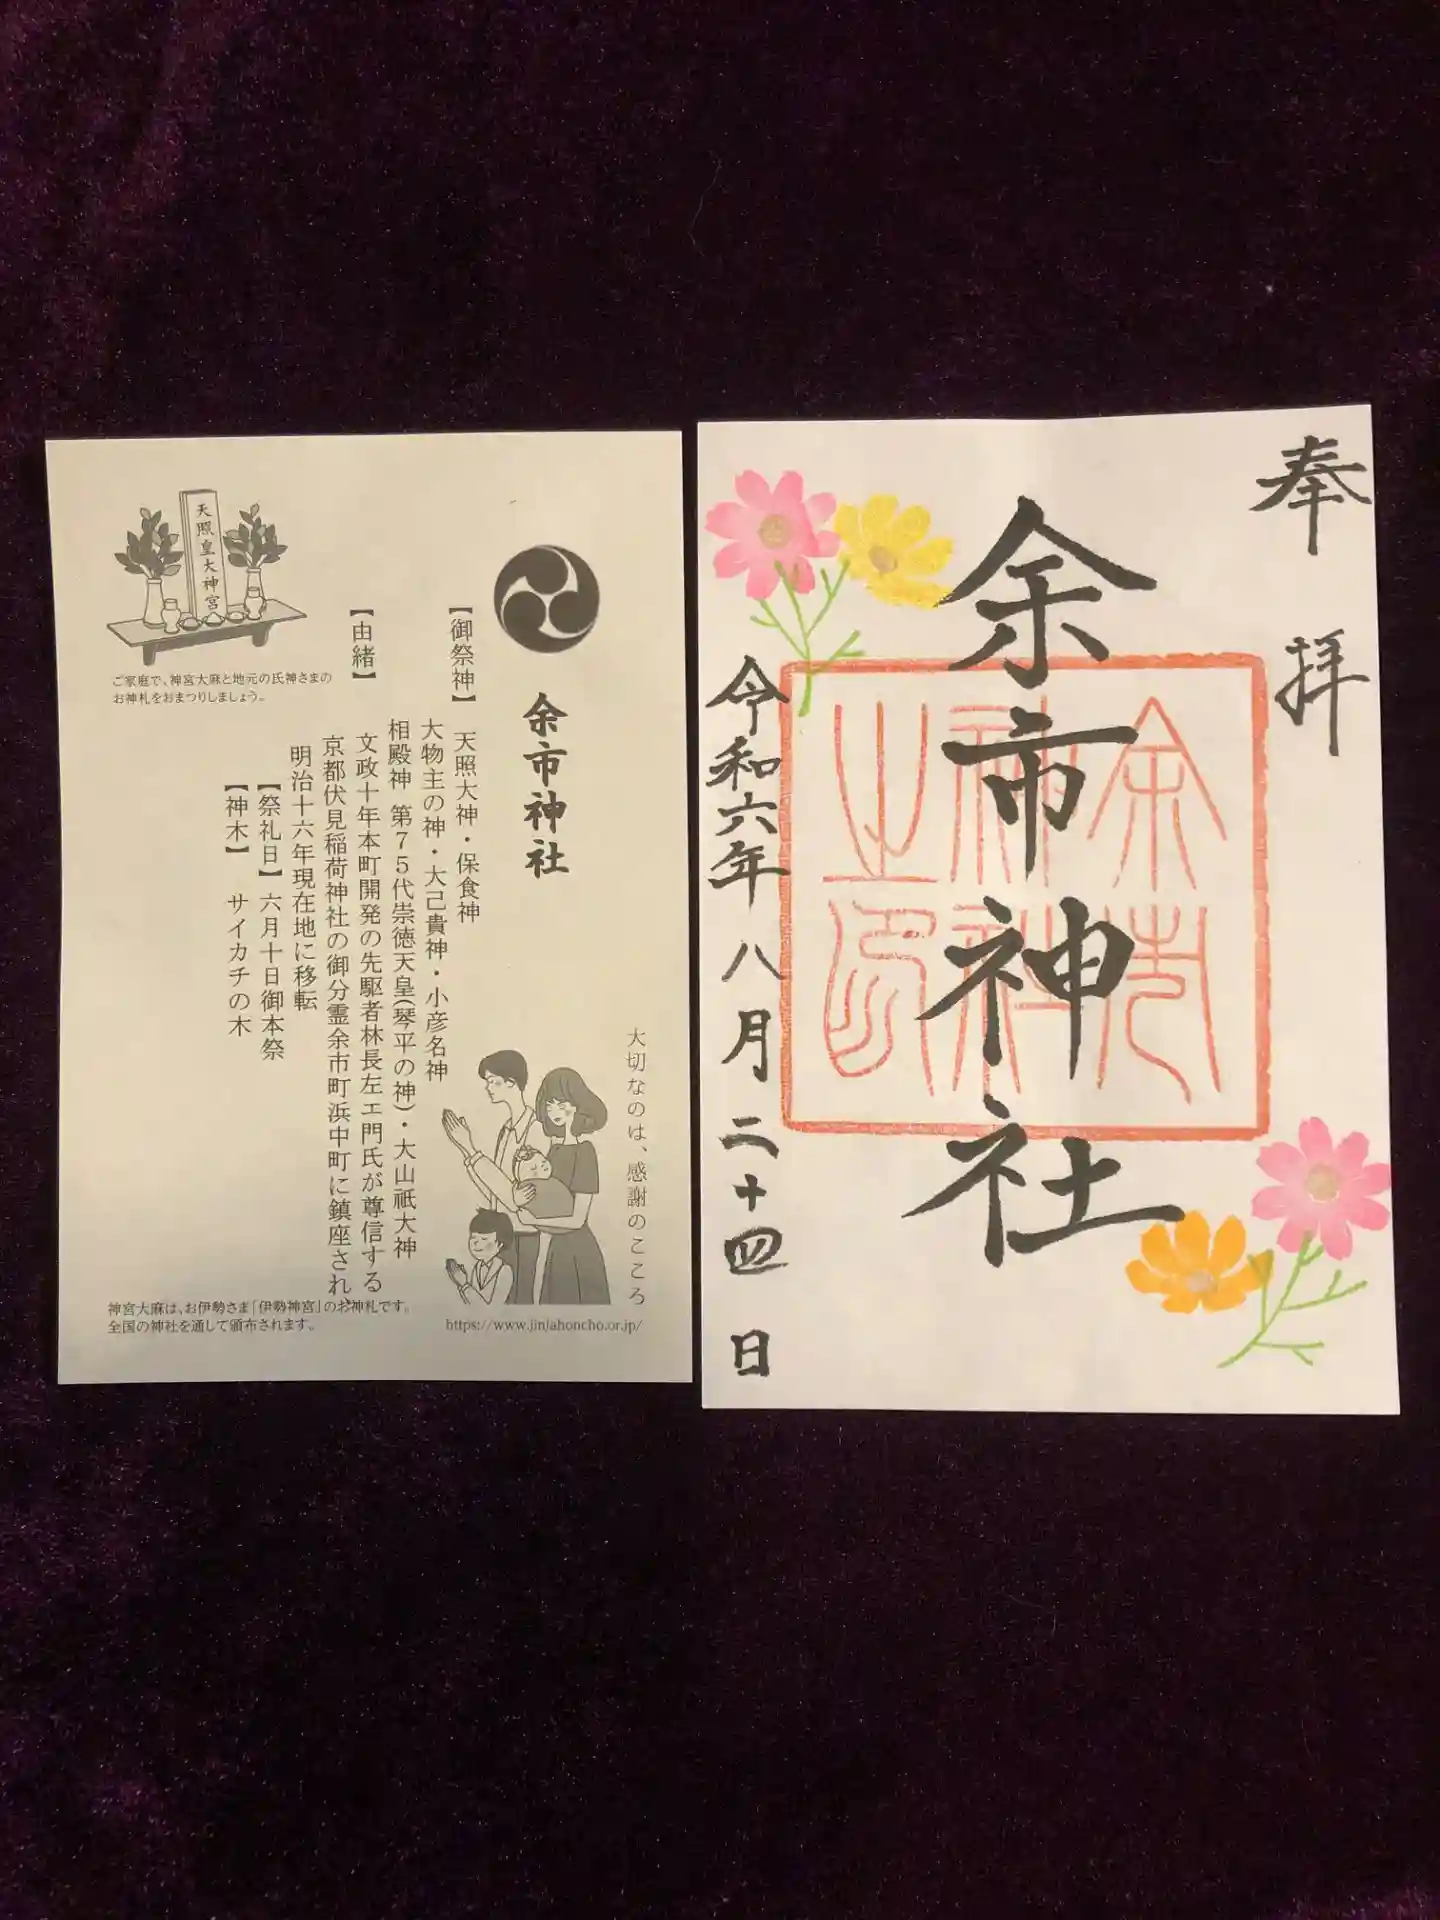 余市神社
【御祭神】 天照大神・保食神
大物主の神・大己貴神・小彦名神
相殿神 第75代崇徳天皇(琴平の神)・大山祇大神
【由緒】
文政十年本町開発の先駆者林長左エ門氏が尊信する
京都伏見稲荷神社の御分霊余市町浜中町に鎮座され、
明治十六年現在地に移転
【祭礼日】 六月十日御本祭
【神木】 サイカチの木
天照皇大神宮
ご家庭で、神宮大麻と地元の氏神さまの
お神札をおまつりしましょう。
大切なのは、感謝のこころ
神宮大麻は、お伊勢さま「伊勢神宮」のお神札です。
全国の神社を通して頒布されます。
https://www.jinjahoncho.or.jp/
奉拝
余市神社
余市
神社
之印
令和六年八月二十四日